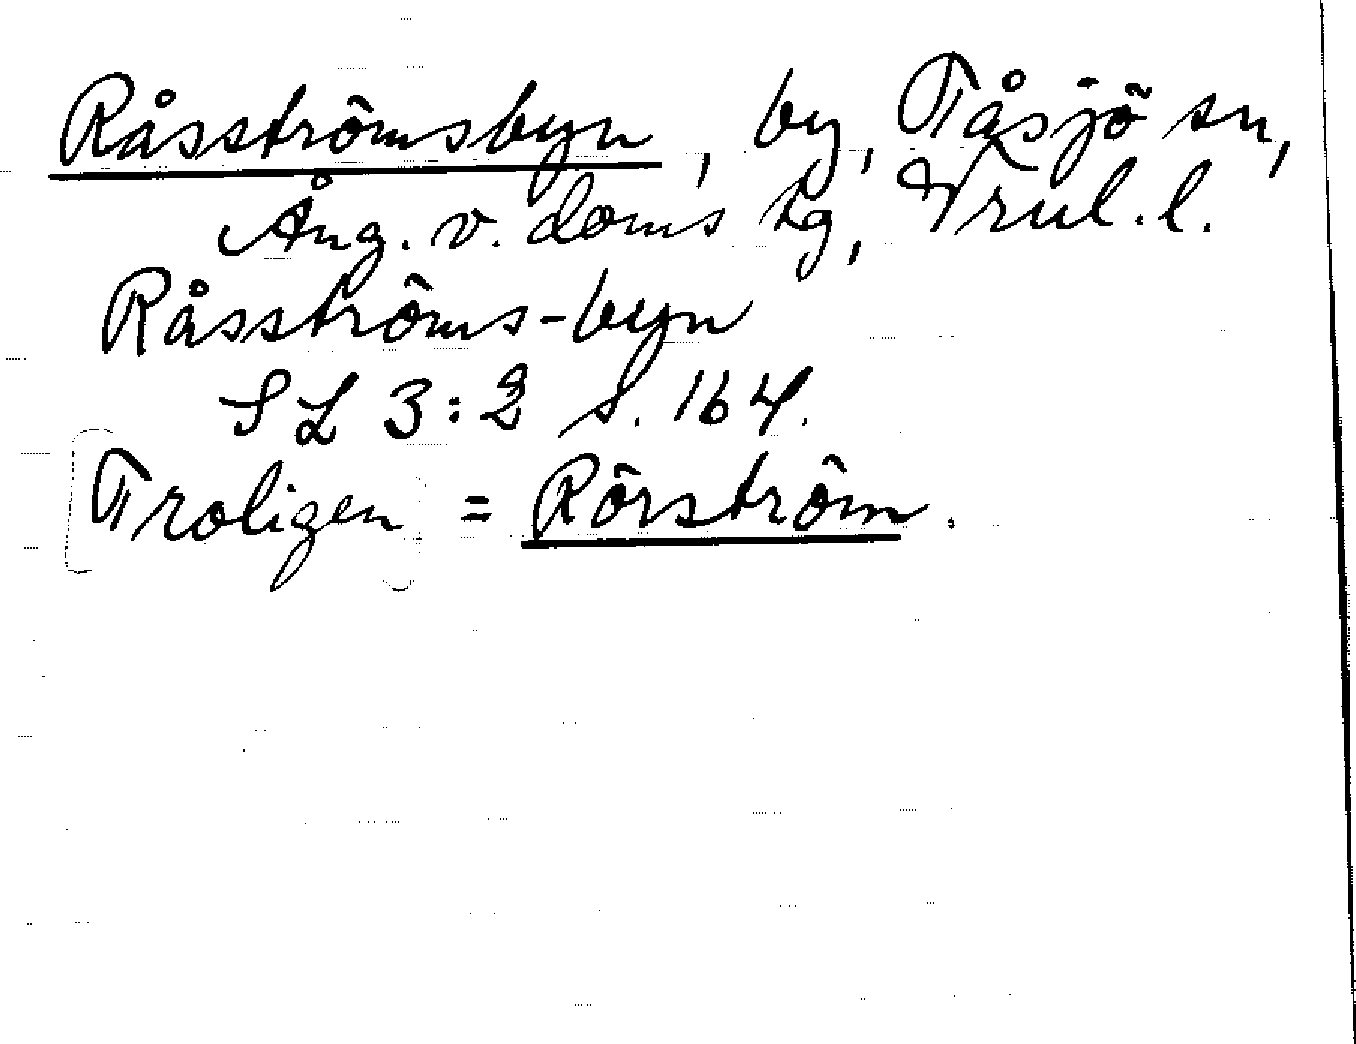 Råsströmsbyn, by, Tåsjö sn,
Ång. v. doms hg, Vrnl. l.
Råsströms-byn
SL 3:2 s. 164.
Troligen = Rörström.